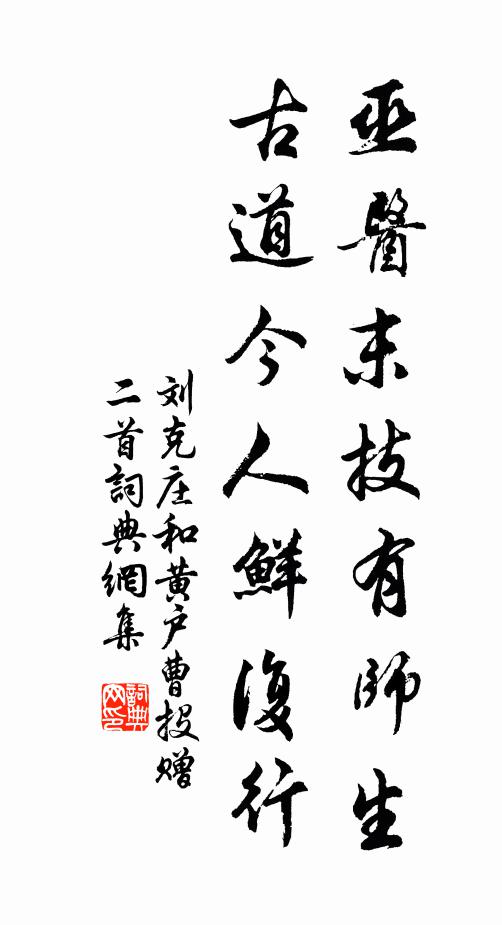 巫醫末技有師生
古道今人鮮復行
刘克庄和黄户曹投赠
二首詞典網集
詞典
网印